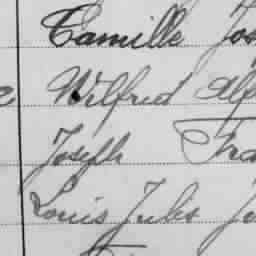 Camille Jos
Wilfred Alf
Joseph Fra
Louis Jules Jo